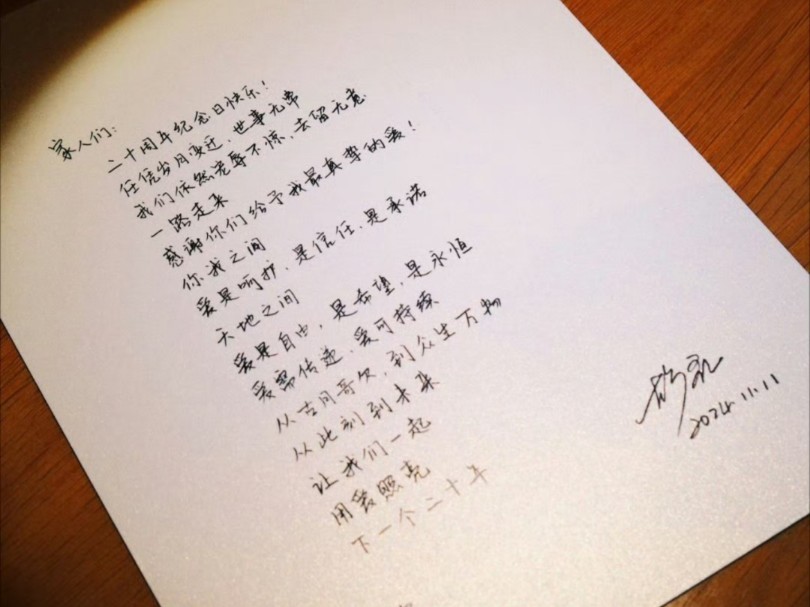 家人们:
二十周年纪念日快乐!
任凭岁月变迁,世事无常
我们依然宠辱不惊,去留无意
一路走来
感谢你们给予我最真挚的爱!
你我之间
爱是呵护,是信任,是承诺
天地之间
爱是自由,是希望,是永恒
爱需传递,爱可持续
从吉月哥欠,到众生万物
从此刻到未来
让我们一起
用爱照亮
下一个二十年
2024.11.11